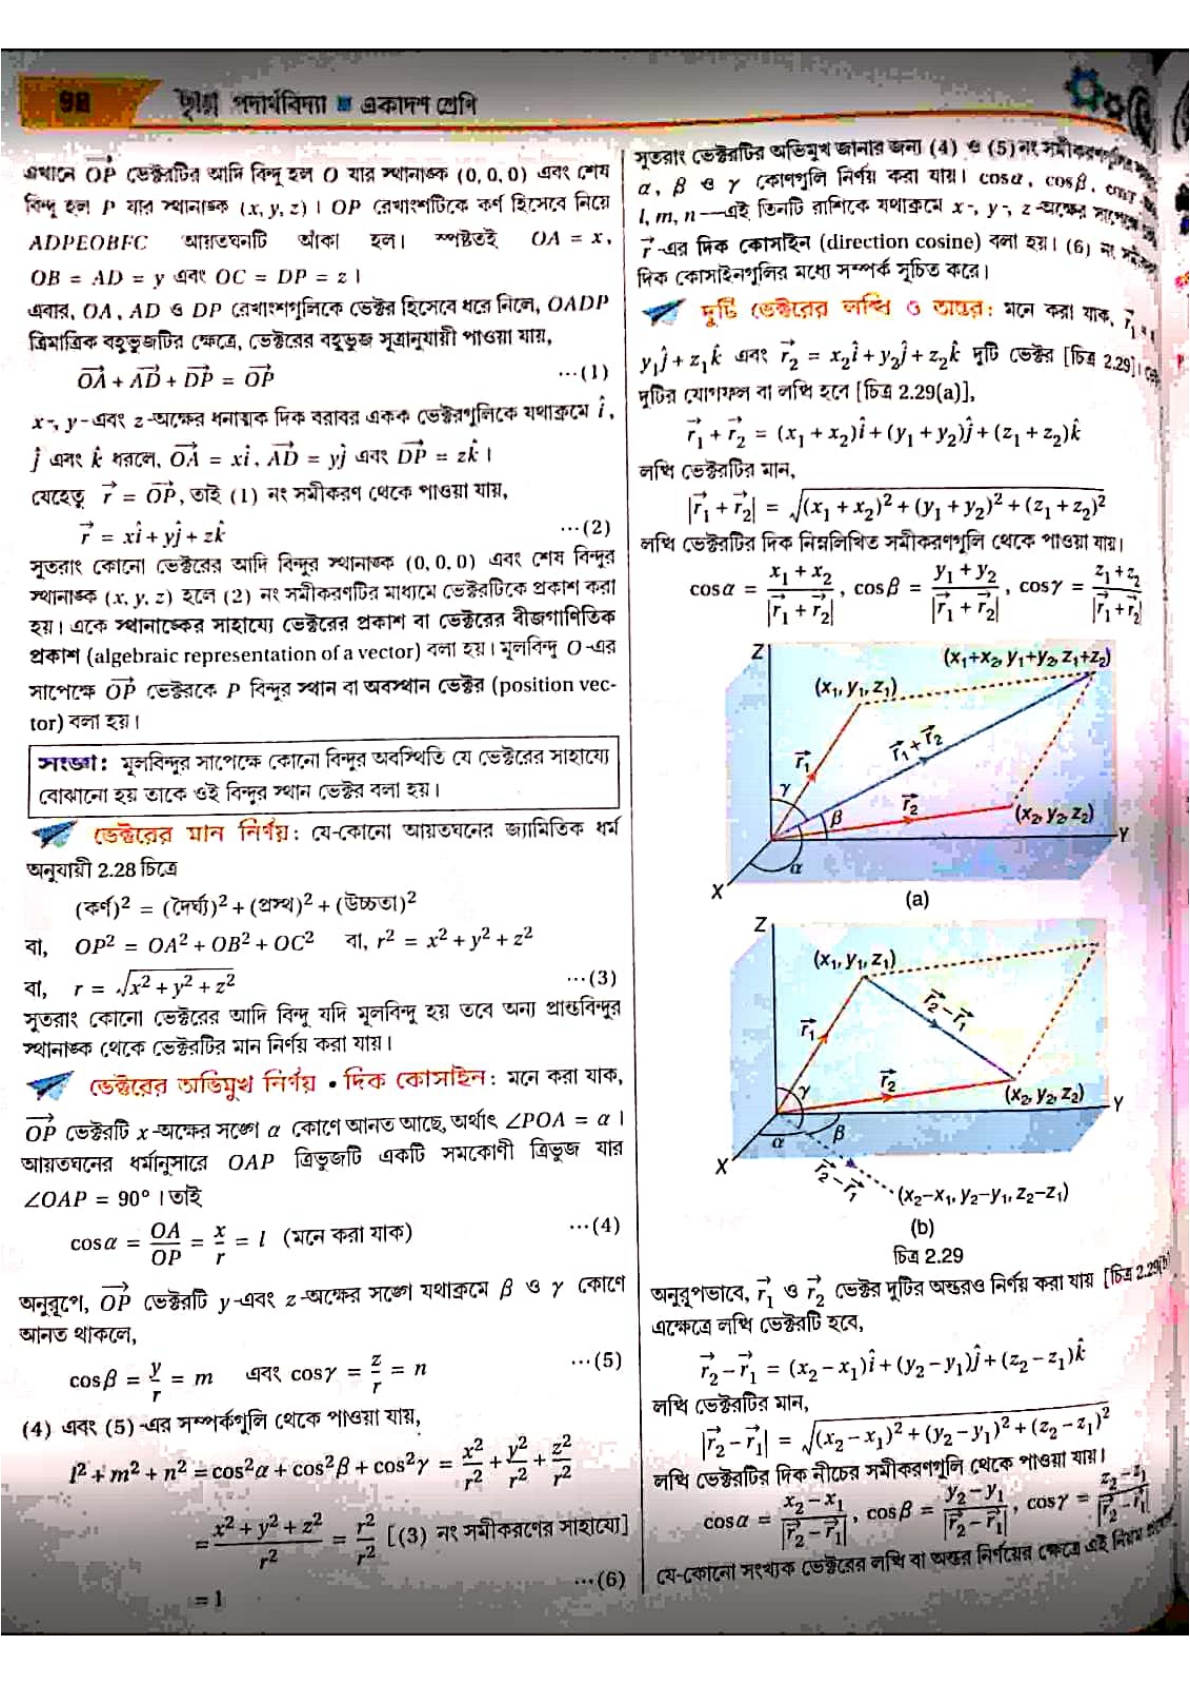 98 ছায়া পদার্থবিদ্যা ■ একাদশ শ্রেণি
এখানে $\overrightarrow{OP}$ ভেক্টরটির আদি বিন্দু হল O যার স্থানাঙ্ক (0, 0, 0) এবং শেষ
বিন্দু হল P যার স্থানাঙ্ক (x, y, z)। OP রেখাংশটিকে কর্ণ হিসেবে নিয়ে
ADPEOBFC আয়তঘনটি আঁকা হল। স্পষ্টতই OA = x,
OB = AD = y এবং OC = DP = z।
এবার, OA, AD ও DP রেখাংশগুলিকে ভেক্টর হিসেবে ধরে নিলে, OADP
ত্রিমাত্রিক বহুভুজটির ক্ষেত্রে, ভেক্টরের বহুভুজ সূত্রানুযায়ী পাওয়া যায়,
$\overrightarrow{OA} + \overrightarrow{AD} + \overrightarrow{DP} = \overrightarrow{OP}$ ⋯(1)
x-, y-এবং z-অক্ষের ধনাত্মক দিক বরাবর একক ভেক্টরগুলিকে যথাক্রমে $\hat{i}$,
$\hat{j}$ এবং $\hat{k}$ ধরলে, $\overrightarrow{OA} = x\hat{i}$, $\overrightarrow{AD} = y\hat{j}$ এবং $\overrightarrow{DP} = z\hat{k}$।
যেহেতু $\vec{r} = \overrightarrow{OP}$, তাই (1) নং সমীকরণ থেকে পাওয়া যায়,
$\vec{r} = x\hat{i} + y\hat{j} + z\hat{k}$ ⋯(2)
সুতরাং কোনো ভেক্টরের আদি বিন্দুর স্থানাঙ্ক (0, 0, 0) এবং শেষ বিন্দুর
স্থানাঙ্ক (x, y, z) হলে (2) নং সমীকরণটির মাধ্যমে ভেক্টরটিকে প্রকাশ করা
হয়। একে স্থানাঙ্কের সাহায্যে ভেক্টরের প্রকাশ বা ভেক্টরের বীজগাণিতিক
প্রকাশ (algebraic representation of a vector) বলা হয়। মূলবিন্দু O-এর
সাপেক্ষে $\overrightarrow{OP}$ ভেক্টরকে P বিন্দুর স্থান বা অবস্থান ভেক্টর (position vec-
tor) বলা হয়।
সংজ্ঞা: মূলবিন্দুর সাপেক্ষে কোনো বিন্দুর অবস্থিতি যে ভেক্টরের সাহায্যে
বোঝানো হয় তাকে ওই বিন্দুর স্থান ভেক্টর বলা হয়।
ভেক্টরের মান নির্ণয়: যে-কোনো আয়তঘনের জ্যামিতিক ধর্ম
অনুযায়ী 2.28 চিত্রে
(কর্ণ)² = (দৈর্ঘ্য)² + (প্রস্থ)² + (উচ্চতা)²
বা, OP² = OA² + OB² + OC² বা, r² = x² + y² + z²
বা, $r = \sqrt{x^2 + y^2 + z^2}$ ⋯(3)
সুতরাং কোনো ভেক্টরের আদি বিন্দু যদি মূলবিন্দু হয় তবে অন্য প্রান্তবিন্দুর
স্থানাঙ্ক থেকে ভেক্টরটির মান নির্ণয় করা যায়।
ভেক্টরের অভিমুখ নির্ণয় • দিক কোসাইন: মনে করা যাক,
$\overrightarrow{OP}$ ভেক্টরটি x-অক্ষের সঙ্গে α কোণে আনত আছে, অর্থাৎ ∠POA = α।
আয়তঘনের ধর্মানুসারে OAP ত্রিভুজটি একটি সমকোণী ত্রিভুজ যার
∠OAP = 90°। তাই
$\cos\alpha = \frac{OA}{OP} = \frac{x}{r} = l$ (মনে করা যাক) ⋯(4)
অনুরূপে, $\overrightarrow{OP}$ ভেক্টরটি y-এবং z-অক্ষের সঙ্গে যথাক্রমে β ও γ কোণে
আনত থাকলে,
$\cos\beta = \frac{y}{r} = m$ এবং $\cos\gamma = \frac{z}{r} = n$ ⋯(5)
(4) এবং (5)-এর সম্পর্কগুলি থেকে পাওয়া যায়,
$l^2 + m^2 + n^2 = \cos^2\alpha + \cos^2\beta + \cos^2\gamma = \frac{x^2}{r^2} + \frac{y^2}{r^2} + \frac{z^2}{r^2}$
$= \frac{x^2 + y^2 + z^2}{r^2} = \frac{r^2}{r^2}$ [(3) নং সমীকরণের সাহায্যে]
= 1 ⋯(6)
সুতরাং ভেক্টরটির অভিমুখ জানার জন্য (4) ও (5)নং
α, β ও γ কোণগুলি নির্ণয় করা যায়। cosα, cosβ,
l, m, n—এই তিনটি রাশিকে যথাক্রমে x-, y-, z-অক্ষের সাপেক্ষে
$\vec{r}$-এর দিক কোসাইন (direction cosine) বলা হয়। (6) নং
দিক কোসাইনগুলির মধ্যে সম্পর্ক সূচিত করে।
দুটি ভেক্টরের লব্ধি ও অন্তর: মনে করা যাক, $\vec{r}_1$ =
$y_1\hat{j} + z_1\hat{k}$ এবং $\vec{r}_2 = x_2\hat{i} + y_2\hat{j} + z_2\hat{k}$ দুটি ভেক্টর [চিত্র 2.29]।
দুটির যোগফল বা লব্ধি হবে [চিত্র 2.29(a)],
$\vec{r}_1 + \vec{r}_2 = (x_1 + x_2)\hat{i} + (y_1 + y_2)\hat{j} + (z_1 + z_2)\hat{k}$
লব্ধি ভেক্টরটির মান,
$|\vec{r}_1 + \vec{r}_2| = \sqrt{(x_1 + x_2)^2 + (y_1 + y_2)^2 + (z_1 + z_2)^2}$
লব্ধি ভেক্টরটির দিক নিম্নলিখিত সমীকরণগুলি থেকে পাওয়া যায়।
$\cos\alpha = \frac{x_1 + x_2}{|\vec{r}_1 + \vec{r}_2|}$, $\cos\beta = \frac{y_1 + y_2}{|\vec{r}_1 + \vec{r}_2|}$, $\cos\gamma = \frac{z_1 + z_2}{|\vec{r}_1 + \vec{r}_2|}$
Z
(x₁+x₂, y₁+y₂, z₁+z₂)
(x₁, y₁, z₁)
$\vec{r}_1 + \vec{r}_2$
$\vec{r}_1$
γ
$\vec{r}_2$
β
(x₂, y₂, z₂)
Y
α
X
(a)
Z
(x₁, y₁, z₁)
$\vec{r}_2 - \vec{r}_1$
$\vec{r}_1$
$\vec{r}_2$
γ
(x₂, y₂, z₂)
Y
α
β
X
$\vec{r}_2 - \vec{r}_1$
(x₂–x₁, y₂–y₁, z₂–z₁)
(b)
চিত্র 2.29
অনুরূপভাবে, $\vec{r}_1$ ও $\vec{r}_2$ ভেক্টর দুটির অন্তরও নির্ণয় করা যায় [চিত্র 2.29(b)
এক্ষেত্রে লব্ধি ভেক্টরটি হবে,
$\vec{r}_2 - \vec{r}_1 = (x_2 - x_1)\hat{i} + (y_2 - y_1)\hat{j} + (z_2 - z_1)\hat{k}$
লব্ধি ভেক্টরটির মান,
$|\vec{r}_2 - \vec{r}_1| = \sqrt{(x_2 - x_1)^2 + (y_2 - y_1)^2 + (z_2 - z_1)^2}$
লব্ধি ভেক্টরটির দিক নীচের সমীকরণগুলি থেকে পাওয়া যায়।
$\cos\alpha = \frac{x_2 - x_1}{|\vec{r}_2 - \vec{r}_1|}$, $\cos\beta = \frac{y_2 - y_1}{|\vec{r}_2 - \vec{r}_1|}$, $\cos\gamma = \frac{z_2 - z_1}{|\vec{r}_2 - \vec{r}_1|}$
যে-কোনো সংখ্যক ভেক্টরের লব্ধি বা অন্তর নির্ণয়ের ক্ষেত্রে এই নিয়ম